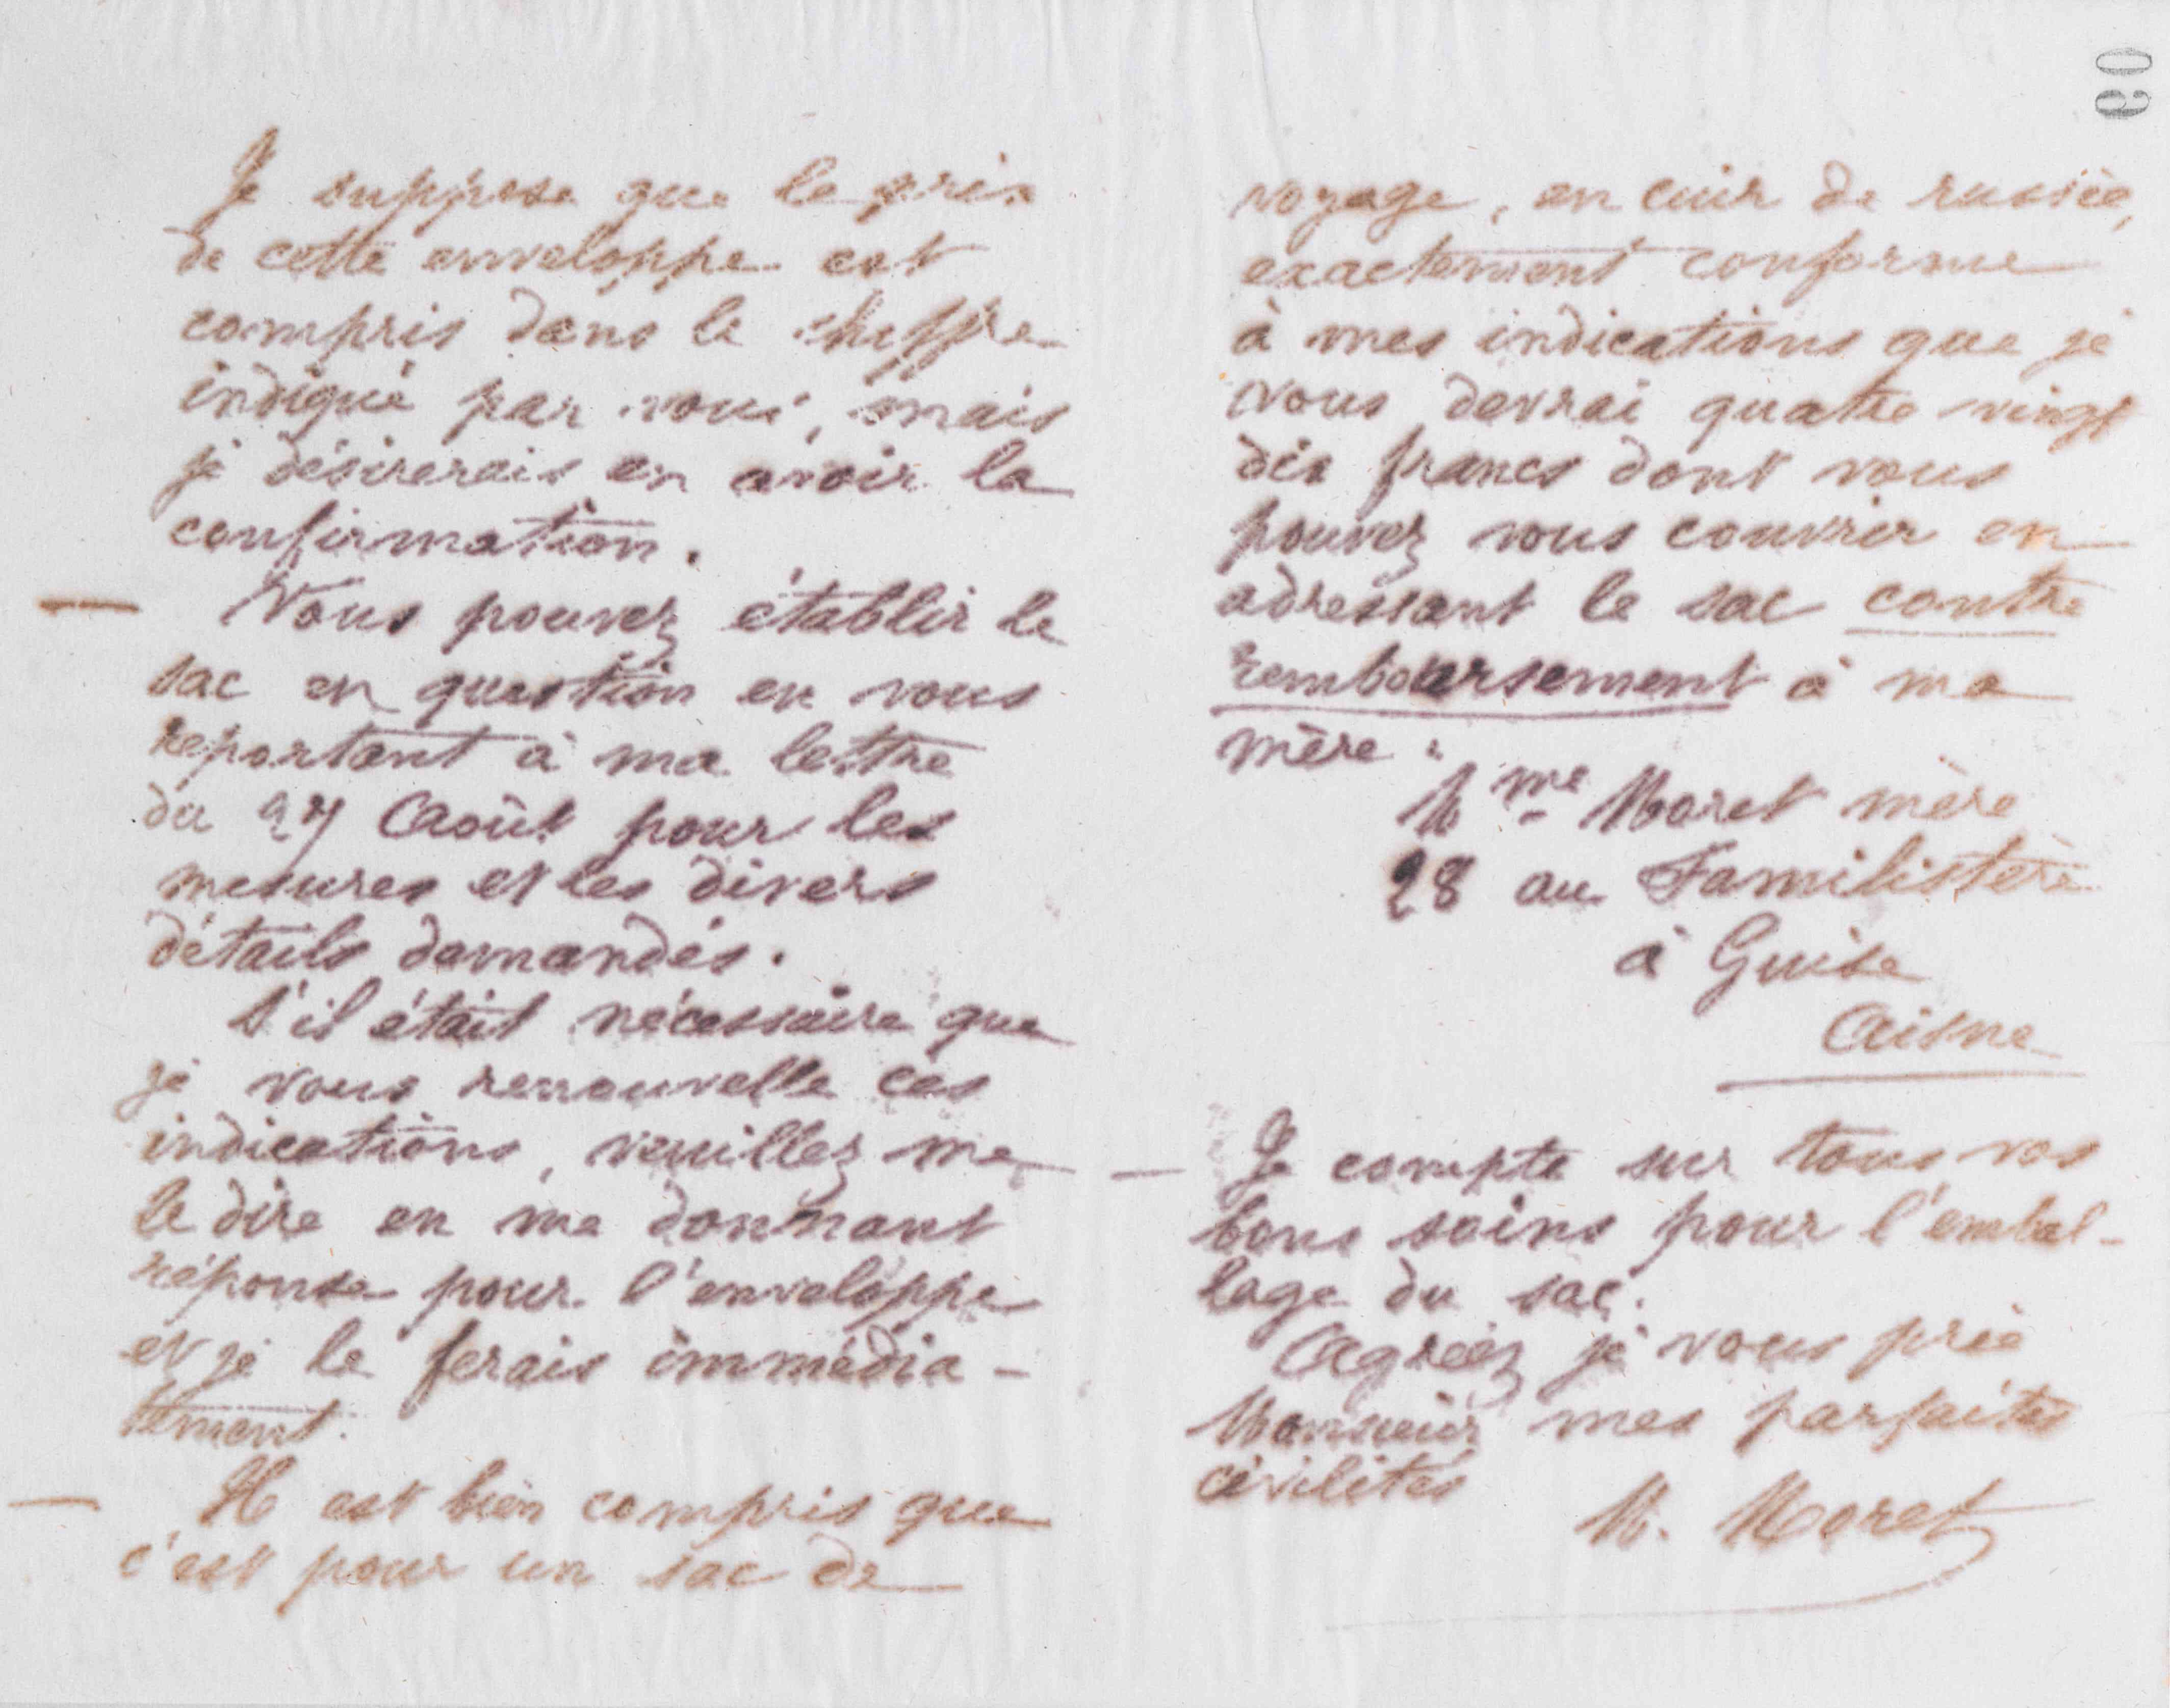 60
Je suppose que le prix
de cette enveloppe est
compris dans le chiffre
indiqué par vous, mais
je désirerais en avoir la
confirmation.
— Vous pouvez établir le
sac en question en vous
reportant à ma lettre
du 27 Août pour les
mesures et les divers
détails demandés.
S'il était nécessaire que
je vous renouvelle ces
indications, veuillez me
le dire en me donnant
réponse pour l'enveloppe
et je le ferais immédia-
tement.
— Il est bien compris que
c'est pour un sac de
voyage, en cuir de russie,
exactement conforme
à mes indications que je
vous devrai quatre vingt
dix francs dont vous
pouvez vous couvrir en
adressant le sac contre
remboursement à ma
mère :
Mme Moret mère
28 au Familistère
à Guise
Aisne
— Je compte sur tous vos
bons soins pour l'embal-
lage du sac.
Agréez je vous prie
Monsieur mes parfaites
civilités
M. Moret